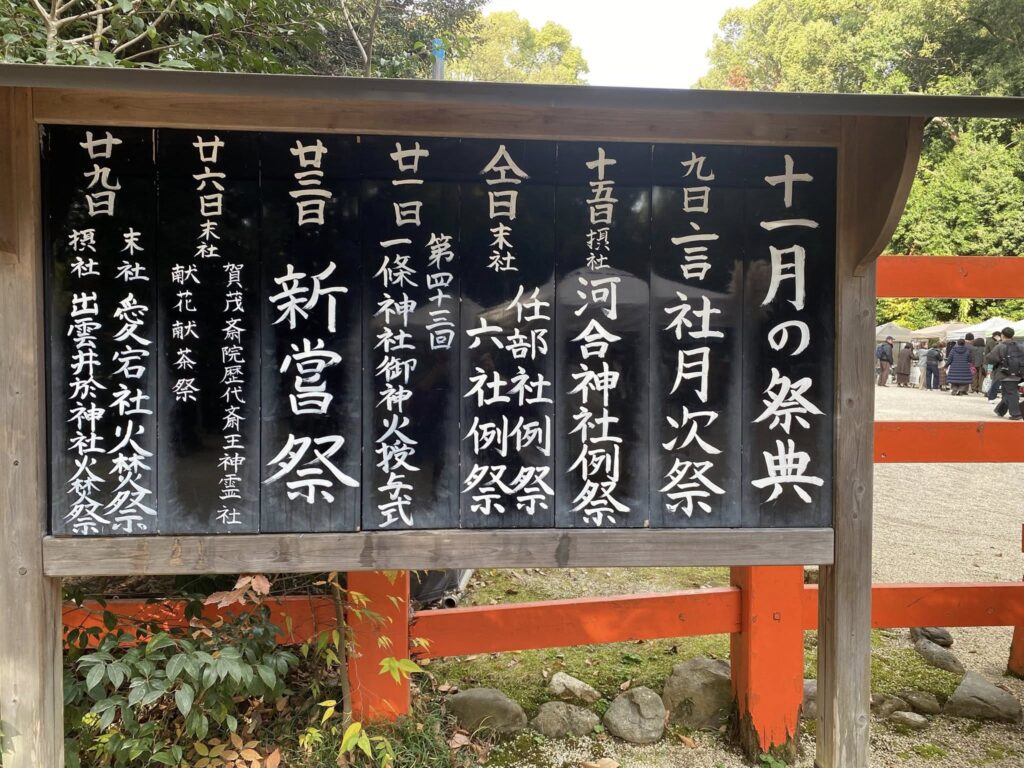 十一月の祭典
九日 言社月次祭
十五日 摂社 河合神社例祭
仝日 末社 任部社例祭
六社例祭
廿一日 第四十三回
一條神社御神火授与式
廿三日 新嘗祭
廿六日 末社 賀茂斎院歴代斎王神霊社
献花献茶祭
廿九日 末社 愛宕社火焚祭
摂社 出雲井於神社火焚祭